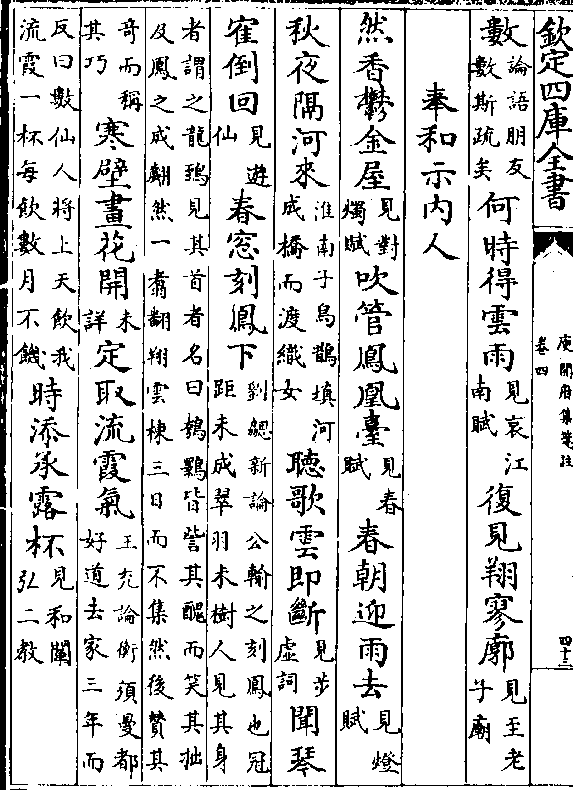 欽定四庫全書
庾開府集箋註
卷四
四十三
數論語朋友數斯疏矣何時得雲雨見哀江南賦復見翔寥廓見至老子廟
奉和示內人
然香鬱金屋見對燭賦吹管鳳凰臺見春賦春朝迎雨去見燈賦
秋夜隔河來淮南子烏鵲填河成橋而渡織女聽歌雲即斷見步虛詞聞琴
寉倒回見遊仙春窓刻鳳下劉勰新論公輸之刻鳳也冠距未成翠羽未樹人見其身
者謂之龍鵄見其首者名曰鵕鸅皆訾其醜而笑其拙及鳳之成翽然一翥翻翔雲棟三日而不集然後贊其
奇而稱其巧寒壁畫花開未詳定取流霞氣王充論衡項曼都好道去家三年而
反曰數仙人將上天飲我流霞一杯每飲數月不饑時添承露杯見和闡弘二教